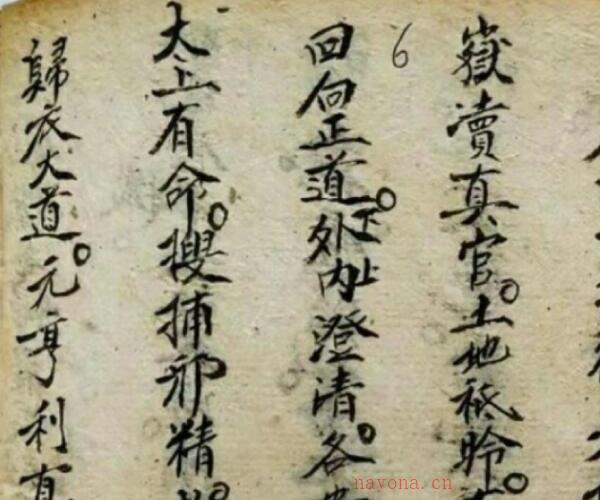 嶽瀆真官。土地祇聆。
6
回向正道。外下内上澄清。各
太上有命。搜捕邪精。
歸依大道。元亨利貞
nayona.cn